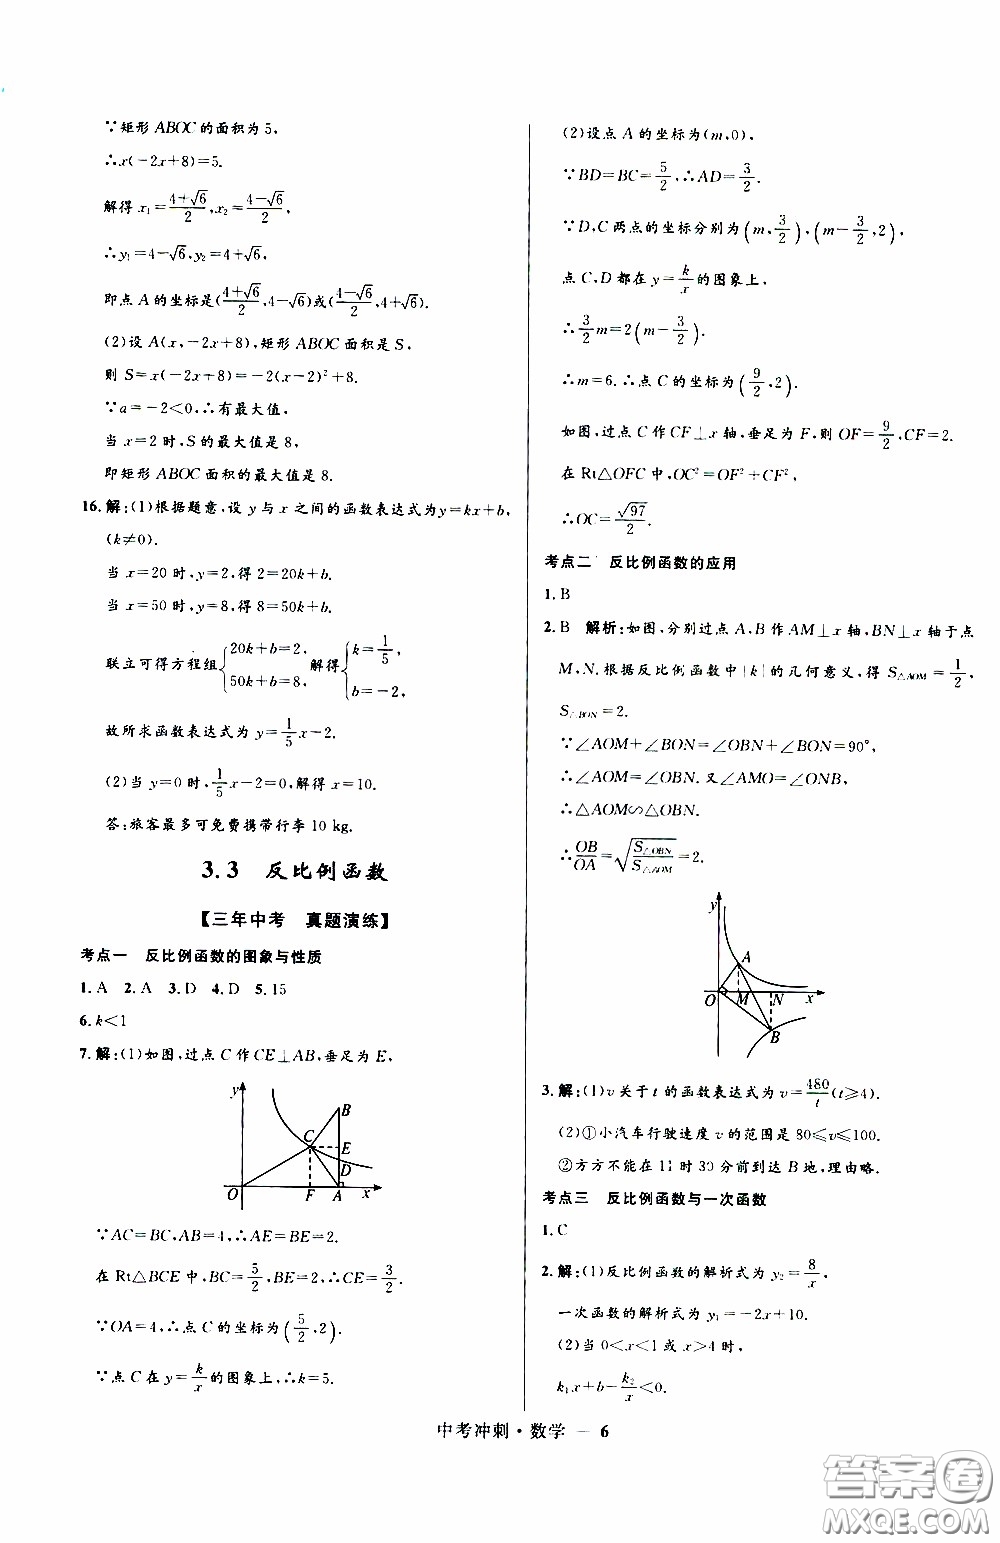 ∵矩形 ABOC 的面积为 5,
∴x(-2x+8)=5.
解得 x₁=(4+√6)/2, x₂=(4-√6)/2,
∴y₁=4-√6, y₂=4+√6,
即点 A 的坐标是((4+√6)/2, 4-√6)或((4-√6)/2, 4+√6).
(2)设 A(x, -2x+8), 矩形 ABOC 面积是 S,
则 S=x(-2x+8)=-2(x-2)²+8.
∵a=-2<0, ∴有最大值,
当 x=2 时, S 的最大值是 8,
即矩形 ABOC 面积的最大值是 8.
16. 解:(1)根据题意, 设 y 与 x 之间的函数表达式为 y=kx+b,
(k≠0).
当 x=20 时, y=2, 得 2=20k+b.
当 x=50 时, y=8, 得 8=50k+b.
联立可得方程组{20k+b=2, 50k+b=8, 解得{k=1/5, b=-2,
故所求函数表达式为 y=1/5x-2.
(2)当 y=0 时, 1/5x-2=0, 解得 x=10.
答:旅客最多可免费携带行李 10 kg.
3.3 反比例函数
【三年中考 真题演练】
考点一 反比例函数的图象与性质
1. A 2. A 3. D 4. D 5. 15
6. k<1
7. 解:(1)如图, 过点 C 作 CE⊥AB, 垂足为 E,
y
B
C
E
D
O
F
A
x
∵AC=BC, AB=4, ∴AE=BE=2.
在 Rt△BCE 中, BC=5/2, BE=2, ∴CE=3/2.
∵OA=4, ∴点 C 的坐标为(5/2, 2).
∵点 C 在 y=k/x 的图象上, ∴k=5.
(2)设点 A 的坐标为(m, 0),
∵BD=BC=5/2, ∴AD=3/2.
∵D, C 两点的坐标分别为(m, 3/2), (m-3/2, 2),
点 C, D 都在 y=k/x 的图象上,
∴3/2m=2(m-3/2).
∴m=6. ∴点 C 的坐标为(9/2, 2).
如图, 过点 C 作 CF⊥x 轴, 垂足为 F, 则 OF=9/2, CF=2.
在 Rt△OFC 中, OC²=OF²+CF²,
∴OC=√97/2.
考点二 反比例函数的应用
1. B
2. B 解析:如图, 分别过点 A, B 作 AM⊥x 轴, BN⊥x 轴于点
M, N. 根据反比例函数中|k|的几何意义, 得 S△AOM=1/2,
S△BON=2.
∵∠AOM+∠BON=∠OBN+∠BON=90°,
∴∠AOM=∠OBN. 又∠AMO=∠ONB,
∴△AOM∽△OBN.
∴OB/OA=√(S△OBN/S△AOM)=2.
y
A
O
M
N
x
B
3. 解:(1)v 关于 t 的函数表达式为 v=480/t(t≥4).
(2)①小汽车行驶速度 v 的范围是 80≤v≤100.
②方方不能在 11 时 30 分前到达 B 地, 理由略.
考点三 反比例函数与一次函数
1. C
2. 解:(1)反比例函数的解析式为 y₂=8/x,
一次函数的解析式为 y₁=-2x+10.
(2)当 0<x<1 或 x>4 时,
k₁x+b-k₂/x<0.
中考冲刺·数学 — 6
答案圈
MXQE.COM